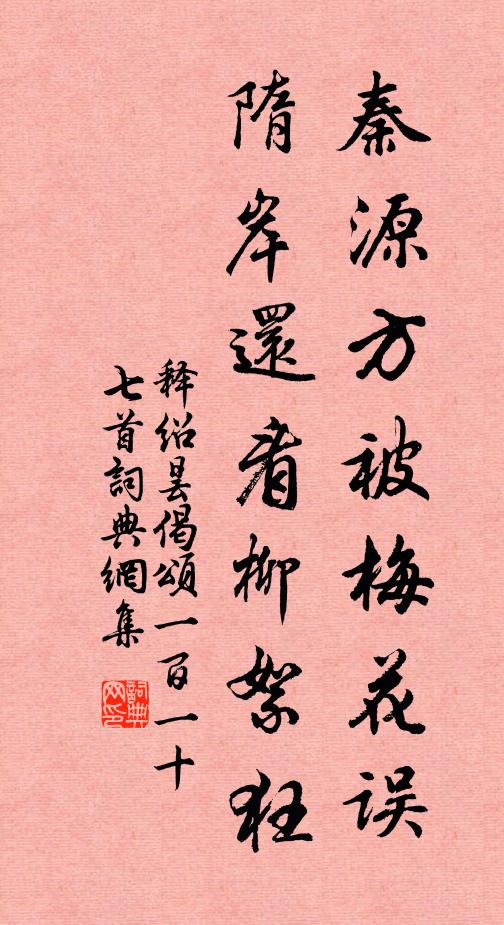 秦源方被梅花误
隋岸還看柳絮狂
释绍昙偈頌一百一十
七首詞典網集
詞典
网印